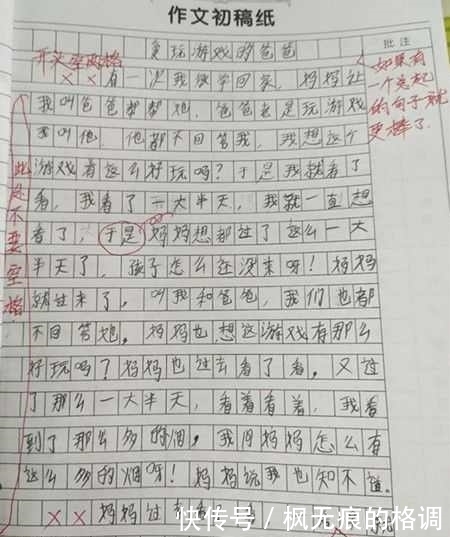 作文初稿纸
爱玩游戏的爸爸
批注
开头空两格
有一次我放学回家，妈妈让
我叫爸爸帮帮她，爸爸老是玩游戏
我叫他，他都不回答我，我想这个
游戏有这么好玩吗？于是我就看了
看，我看了一大半天，我就一直想
看了，于是妈妈想都过了这么一大
半天了，孩子怎么还没来呀！妈妈
就过来了，叫我和爸爸，我们也都
不回答她，妈妈也想这游戏有那么
好玩吗？妈妈也过去看了看，又过
了那么一大半天，看着看着，我看
到了那么多的烟，我问妈妈怎么有
这么多的烟呀！妈妈说我也知不道
妈妈过去看
如果有
一个总起
的句子就
更棒了
此处不要空格
快传号／枫无痕的格调